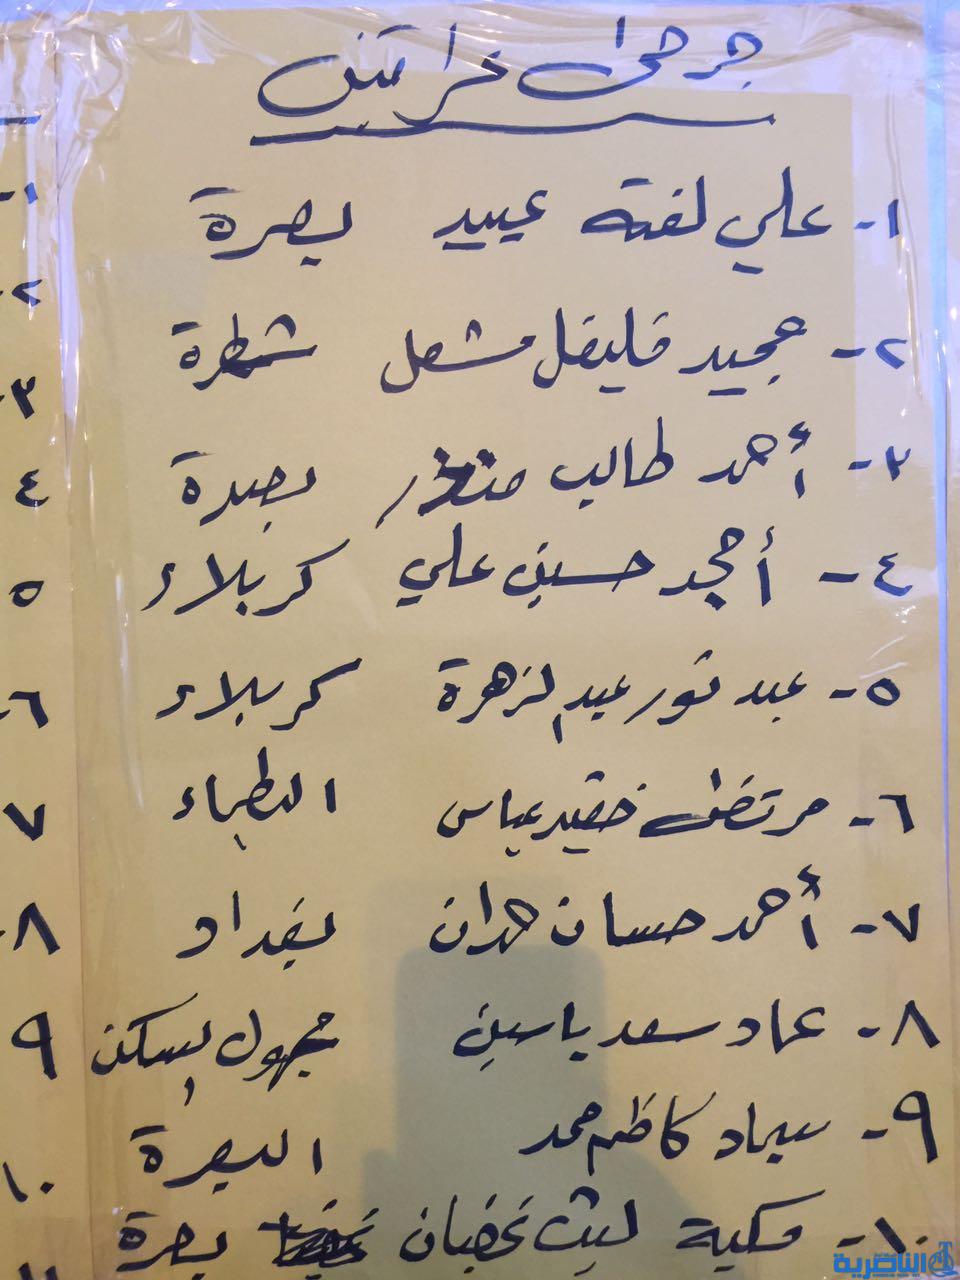 جرحى
١- علي لفتة عبيد بصرة
٢- مجيد فليفل مشعل شطرة
٣- أحمد طالب منذر بصرة
٤- أمجد حسين علي كربلاء
٥- عبد نور عبد الزهرة كربلاء
٦- مرتضى عباس البطحاء
٧- أحمد حسان حمدان بغداد
٨- عماد سعد ياسين مجهول السكن
٩- سجاد كاظم محمد البصرة
١٠- مكية ليث غضبان بصرة
الناصرية
١-
٢-
٣-
٤
٥
٦-
٧
٨-
٩
١٠